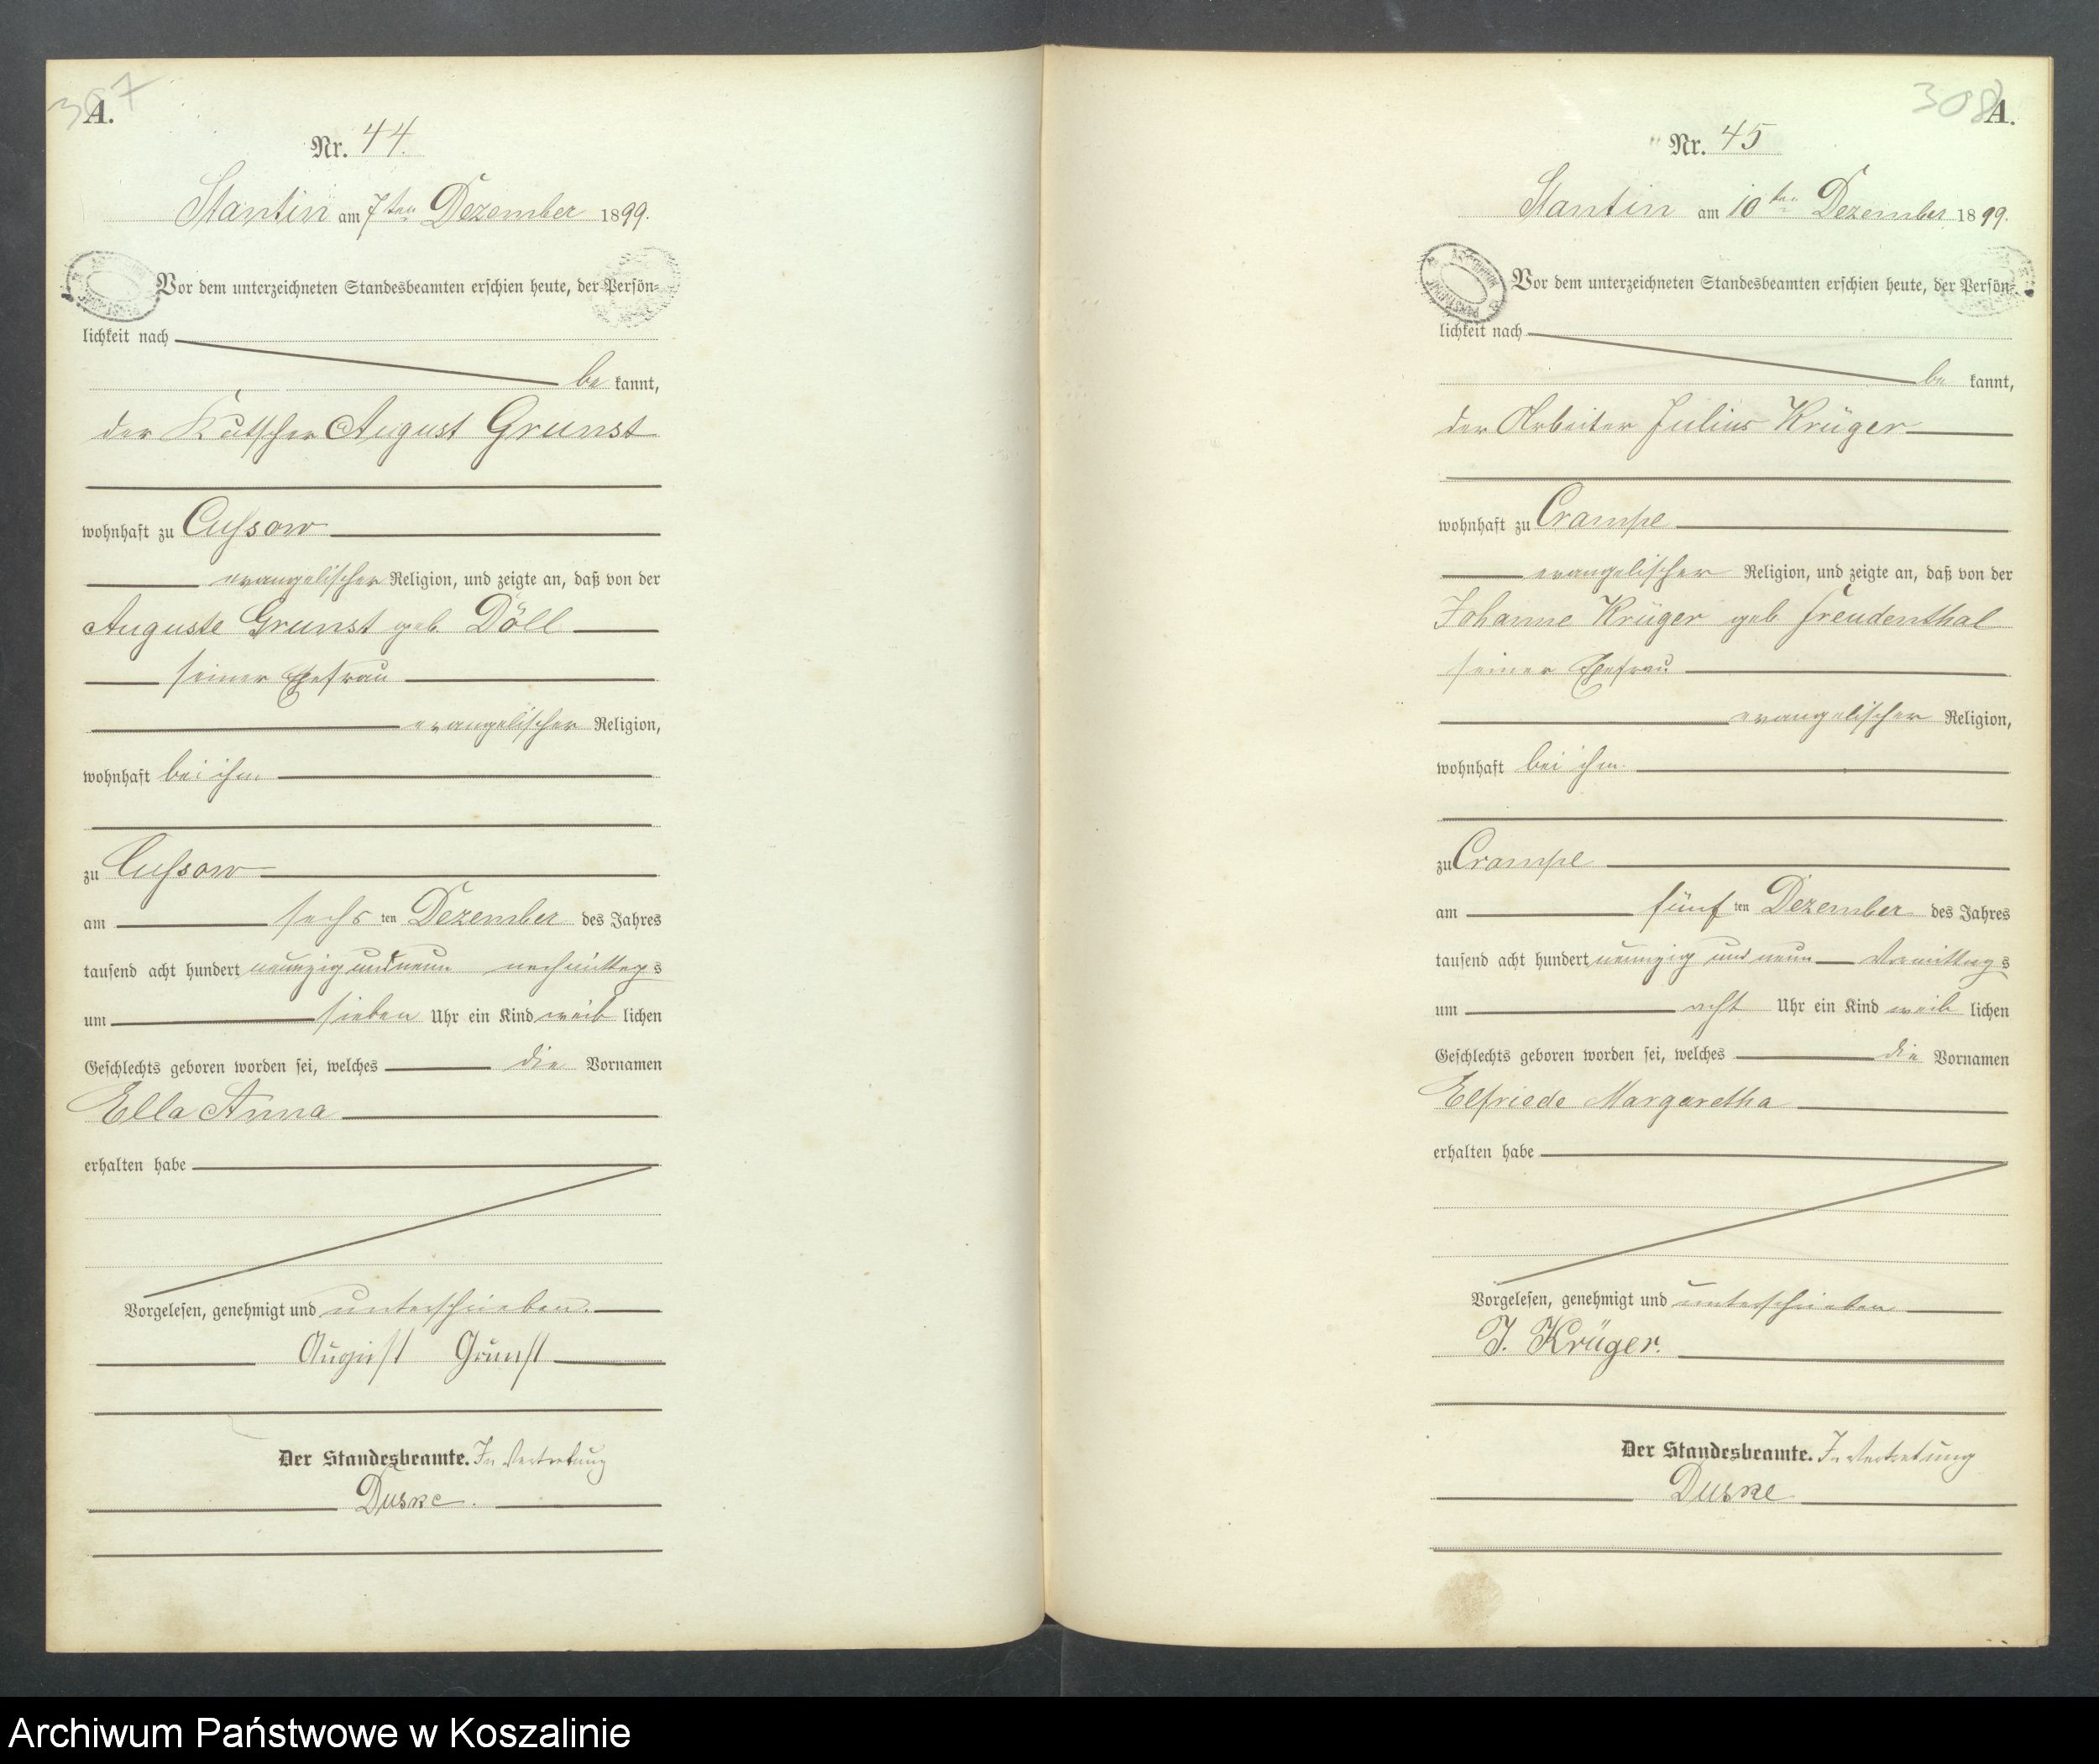 307
A.
Nr. 44.
Stantin am 7ten Dezember 1899.
Vor dem unterzeichneten Standesbeamten erschien heute, der Persön-
lichkeit nach
be kannt,
der Kutscher August Grunst
wohnhaft zu Cussow
evangelischer Religion, und zeigte an, daß von der
Auguste Grunst geb. Döll
seiner Ehefrau
evangelischer Religion,
wohnhaft bei ihm
zu Cussow
am sechs ten Dezember des Jahres
tausend acht hundert neunzig und neun nachmittags
um sieben Uhr ein Kind weib lichen
Geschlechts geboren worden sei, welches die Vornamen
Ella Anna
erhalten habe
Vorgelesen, genehmigt und unterschrieben.
August Grunst
Der Standesbeamte. In Vertretung
Duske.
308
A.
Nr. 45
Stantin am 10ten Dezember 1899.
Vor dem unterzeichneten Standesbeamten erschien heute, der Persön-
lichkeit nach
be kannt,
der Arbeiter Julius Krüger
wohnhaft zu Crampe
evangelischer Religion, und zeigte an, daß von der
Johanne Krüger geb Freudenthal
seiner Ehefrau
evangelischer Religion,
wohnhaft bei ihm
zu Crampe
am fünf ten Dezember des Jahres
tausend acht hundert neunzig und neun Vormittags
um acht Uhr ein Kind weib lichen
Geschlechts geboren worden sei, welches die Vornamen
Elfriede Margaretha
erhalten habe
Vorgelesen, genehmigt und unterschrieben
J. Krüger.
Der Standesbeamte. In Vertretung
Duske
Archiwum Państwowe w Koszalinie